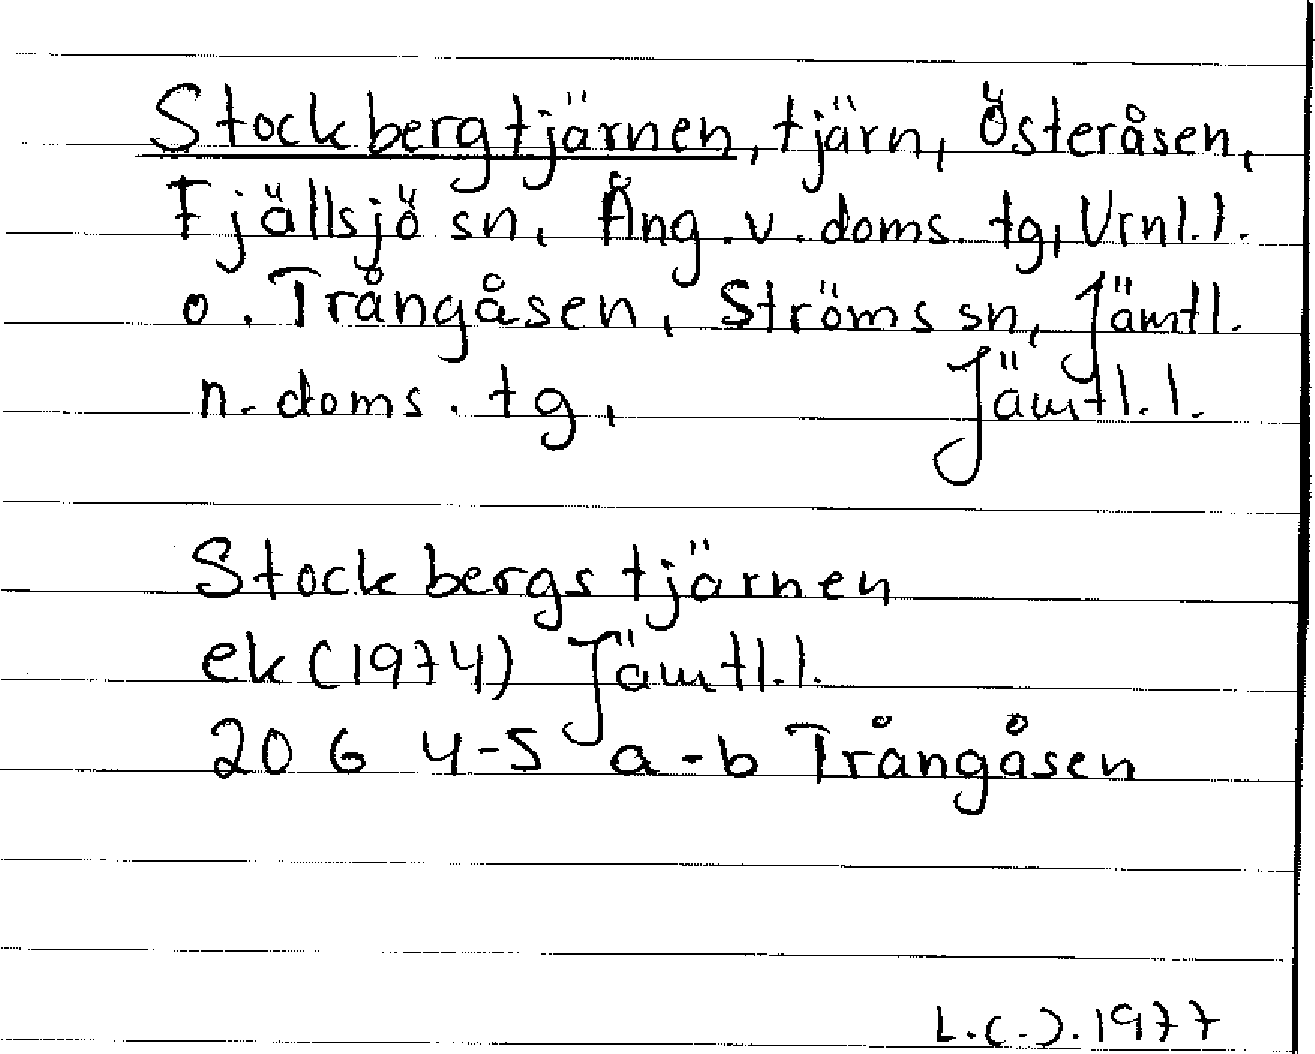 Stockbergtjärnen, tjärn, Österåsen,
Fjällsjö sn, Ång.v.doms.tg, Vrnl.l.
o. Trångåsen, Ströms sn, Jämtl.
n.doms.tg, Jämtl.l.
Stockbergstjärnen
ek (1974) Jämtl.l.
20 G 4-5 a-b Trångåsen
L.C.J. 1977